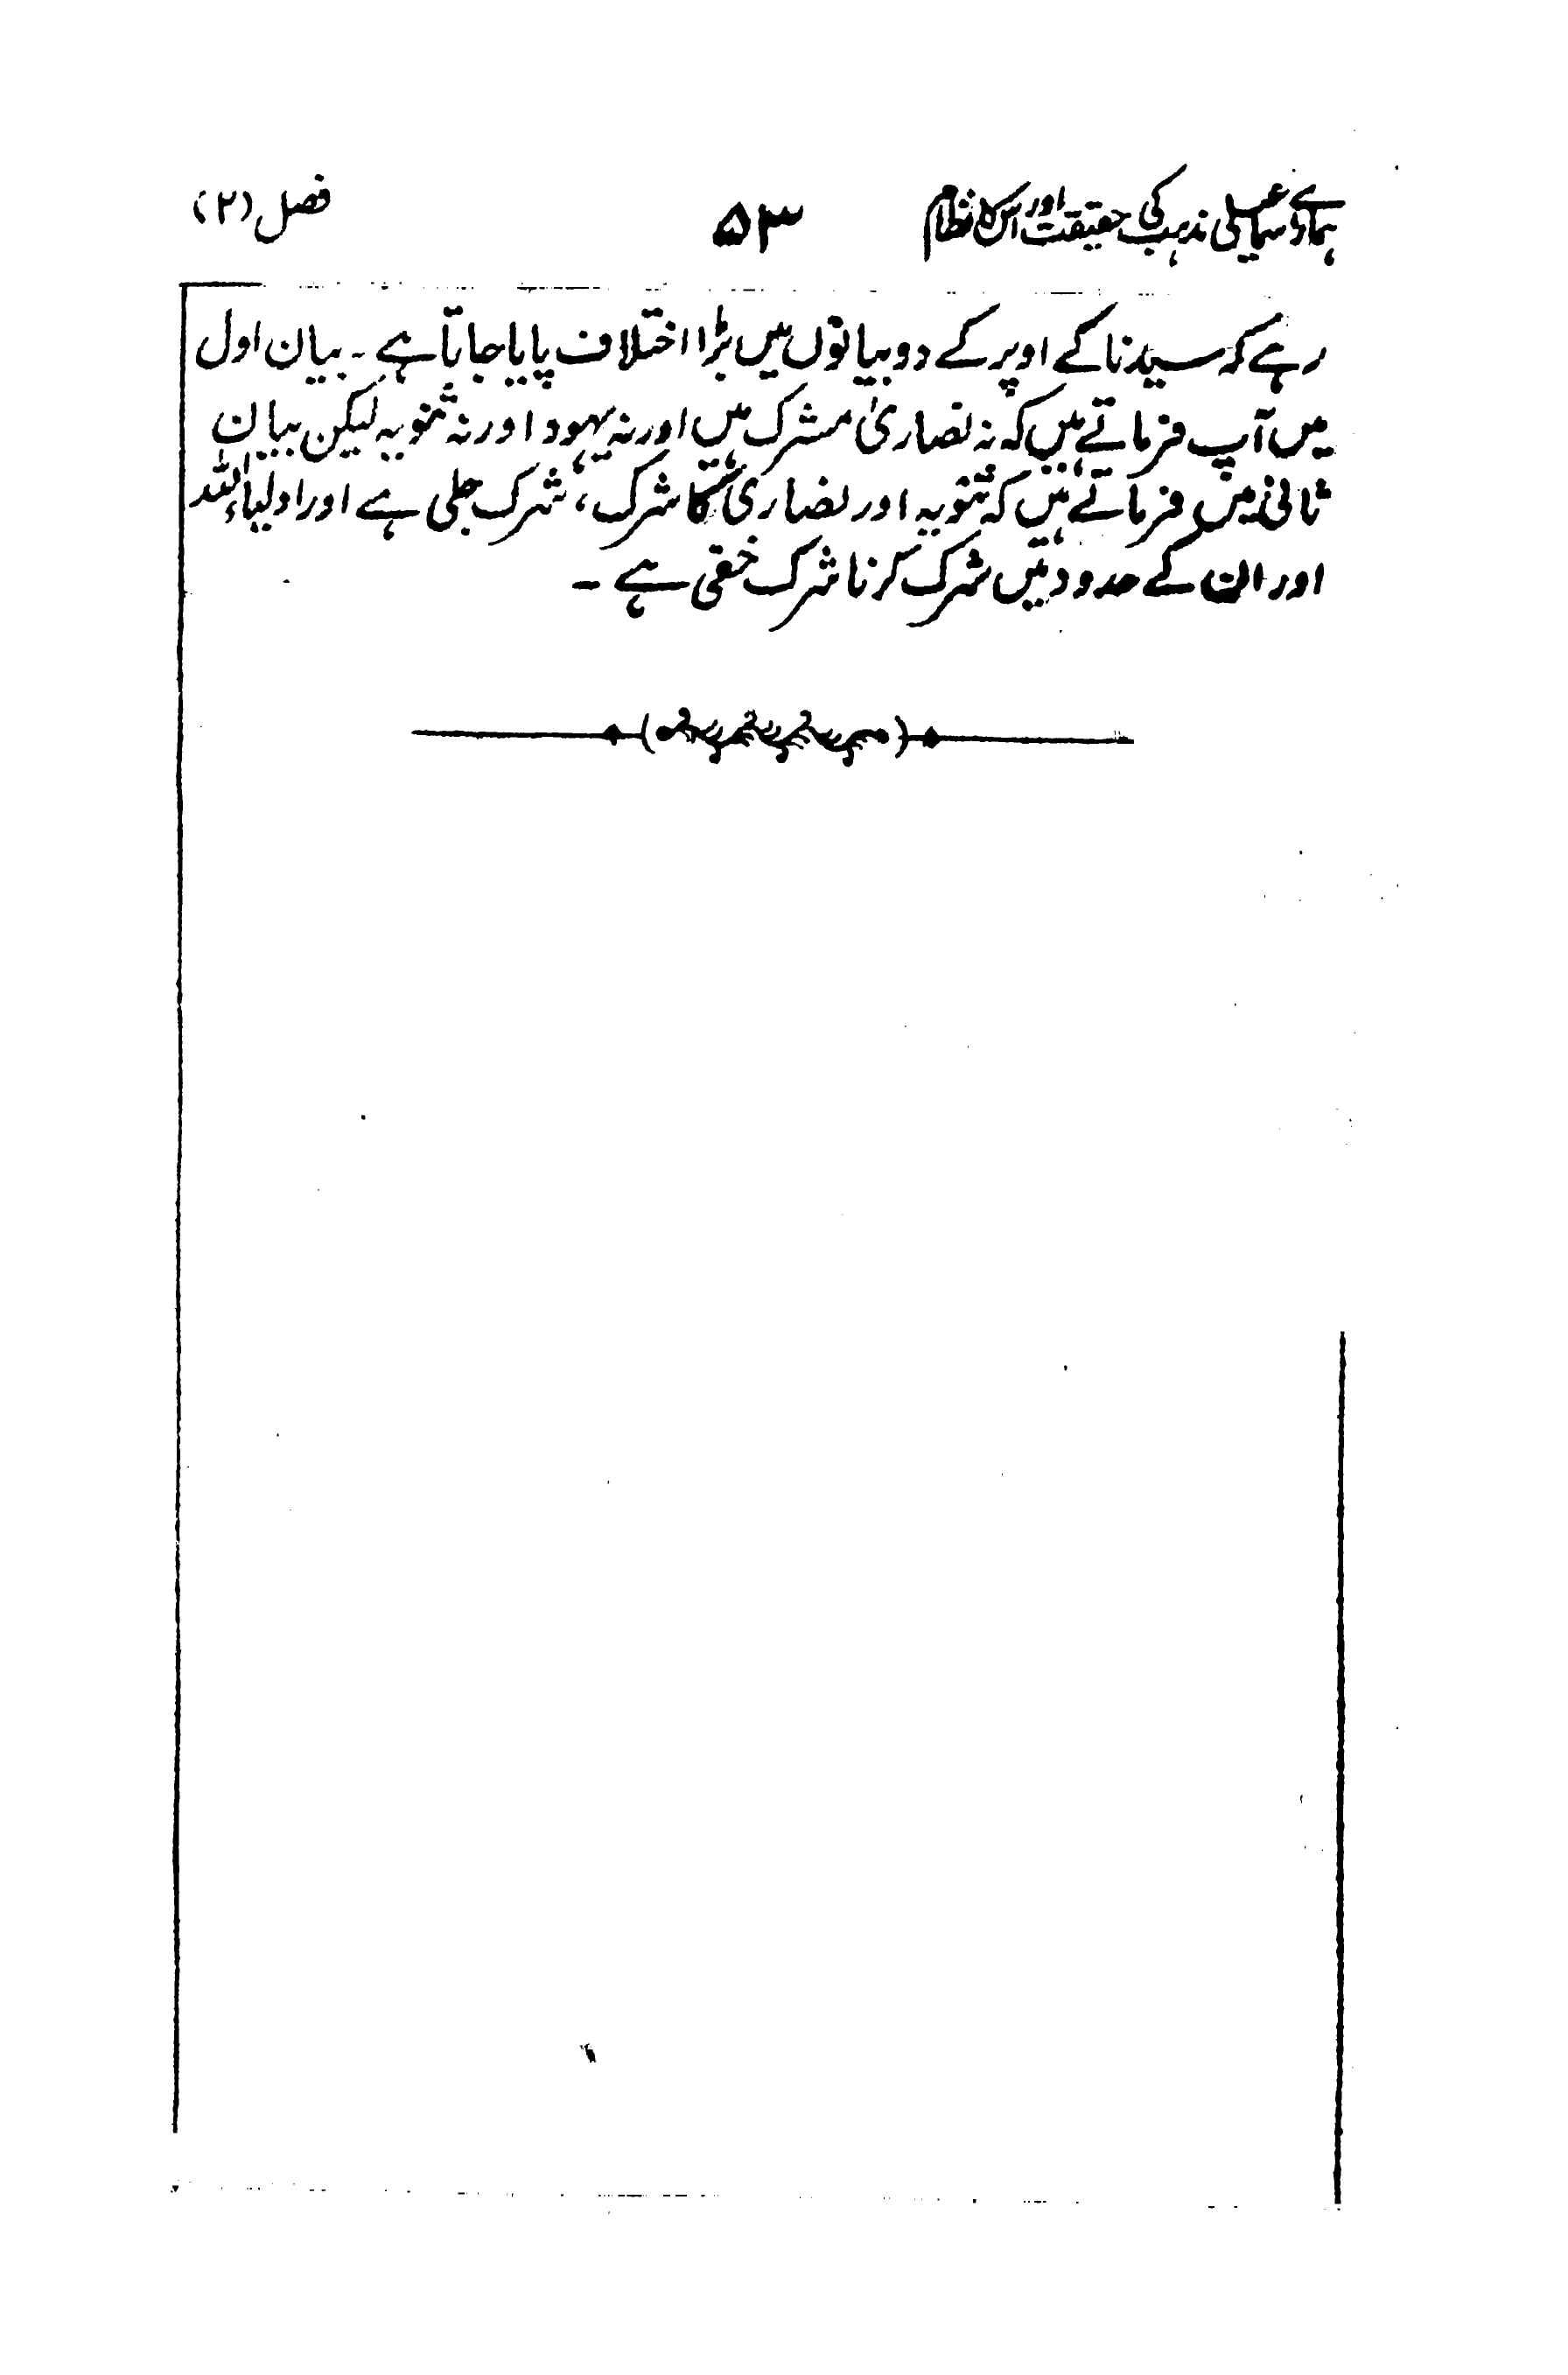 ہمارے اسماعیلی مذہب کی حقیقت اور اس کا نظام ۵۳ فصل (۲)
رہے کہ سیدنا کے اوپر کے دو بیانوں میں بڑا اختلاف پایا جاتا ہے ۔ بیان اول
میں آپ فرماتے ہیں کہ نہ نصاریٰ مشرک ہیں اور نہ یہود اور نہ ثنویہ لیکن بیان
ثانی میں فرماتے ہیں کہ ثنویہ اور نصاریٰ کا شرک ، شرک جلی ہے اور اولیاء اللہ
اور ان کے حدود میں شرک کرنا شرک خفی ہے ۔